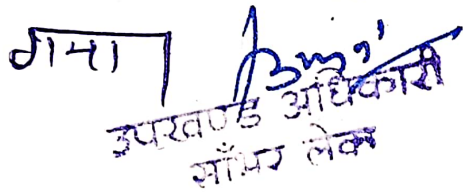 गया
उपखण्ड अधिकारी
साँभर लेक